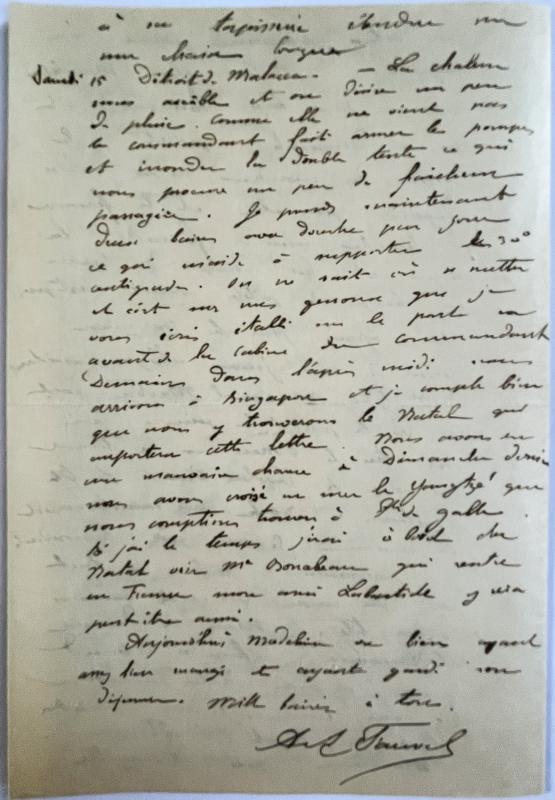 à sa tapisserie étendue sur
une chaise longue
Samedi 15 Détroit de Malacca. — La chaleur
nous accable et on désire un peu
de pluie. Comme elle ne vient pas
le commandant fait armer les pompes
et inonder la double tente ce qui
nous procure un peu de fraicheur
passagère. Je prends maintenant
deux bains avec douche par jour
ce qui m'aide à supporter les 30°
centigrades. On ne sait où se mettre
et c'est sur mes genoux que je
vous écris établi sur le pont en
avant de la cabine du commandant
Demain dans l'après midi nous
arrivons à Singapore et je compte bien
que nous y trouverons le Natal qui
emportera cette lettre. Nous avons eu
une mauvaise chance à Dimanche dernier
nous avons croisé en mer le Yangtzé que
nous comptions trouver à Pte de Galle.
Si j'ai le temps j'irai à bord du
Natal voir Mr Bonabeau qui rentre
en France mon ami Labastide y sera
peut être aussi.
Aujourd'hui Madeleine va bien ayant
assez bien mangé et ayant gardé son
déjeuner. Mille baisers à tous.
A. Fauvel